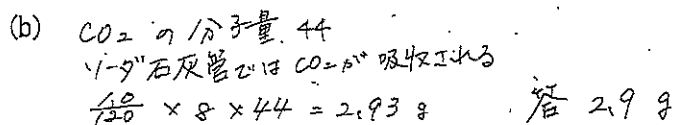 (b) CO₂ の分子量 44
ソーダ石灰管では CO₂が 吸収される
1.0/120 × 8 × 44 = 2.93 g . 答 2.9 g